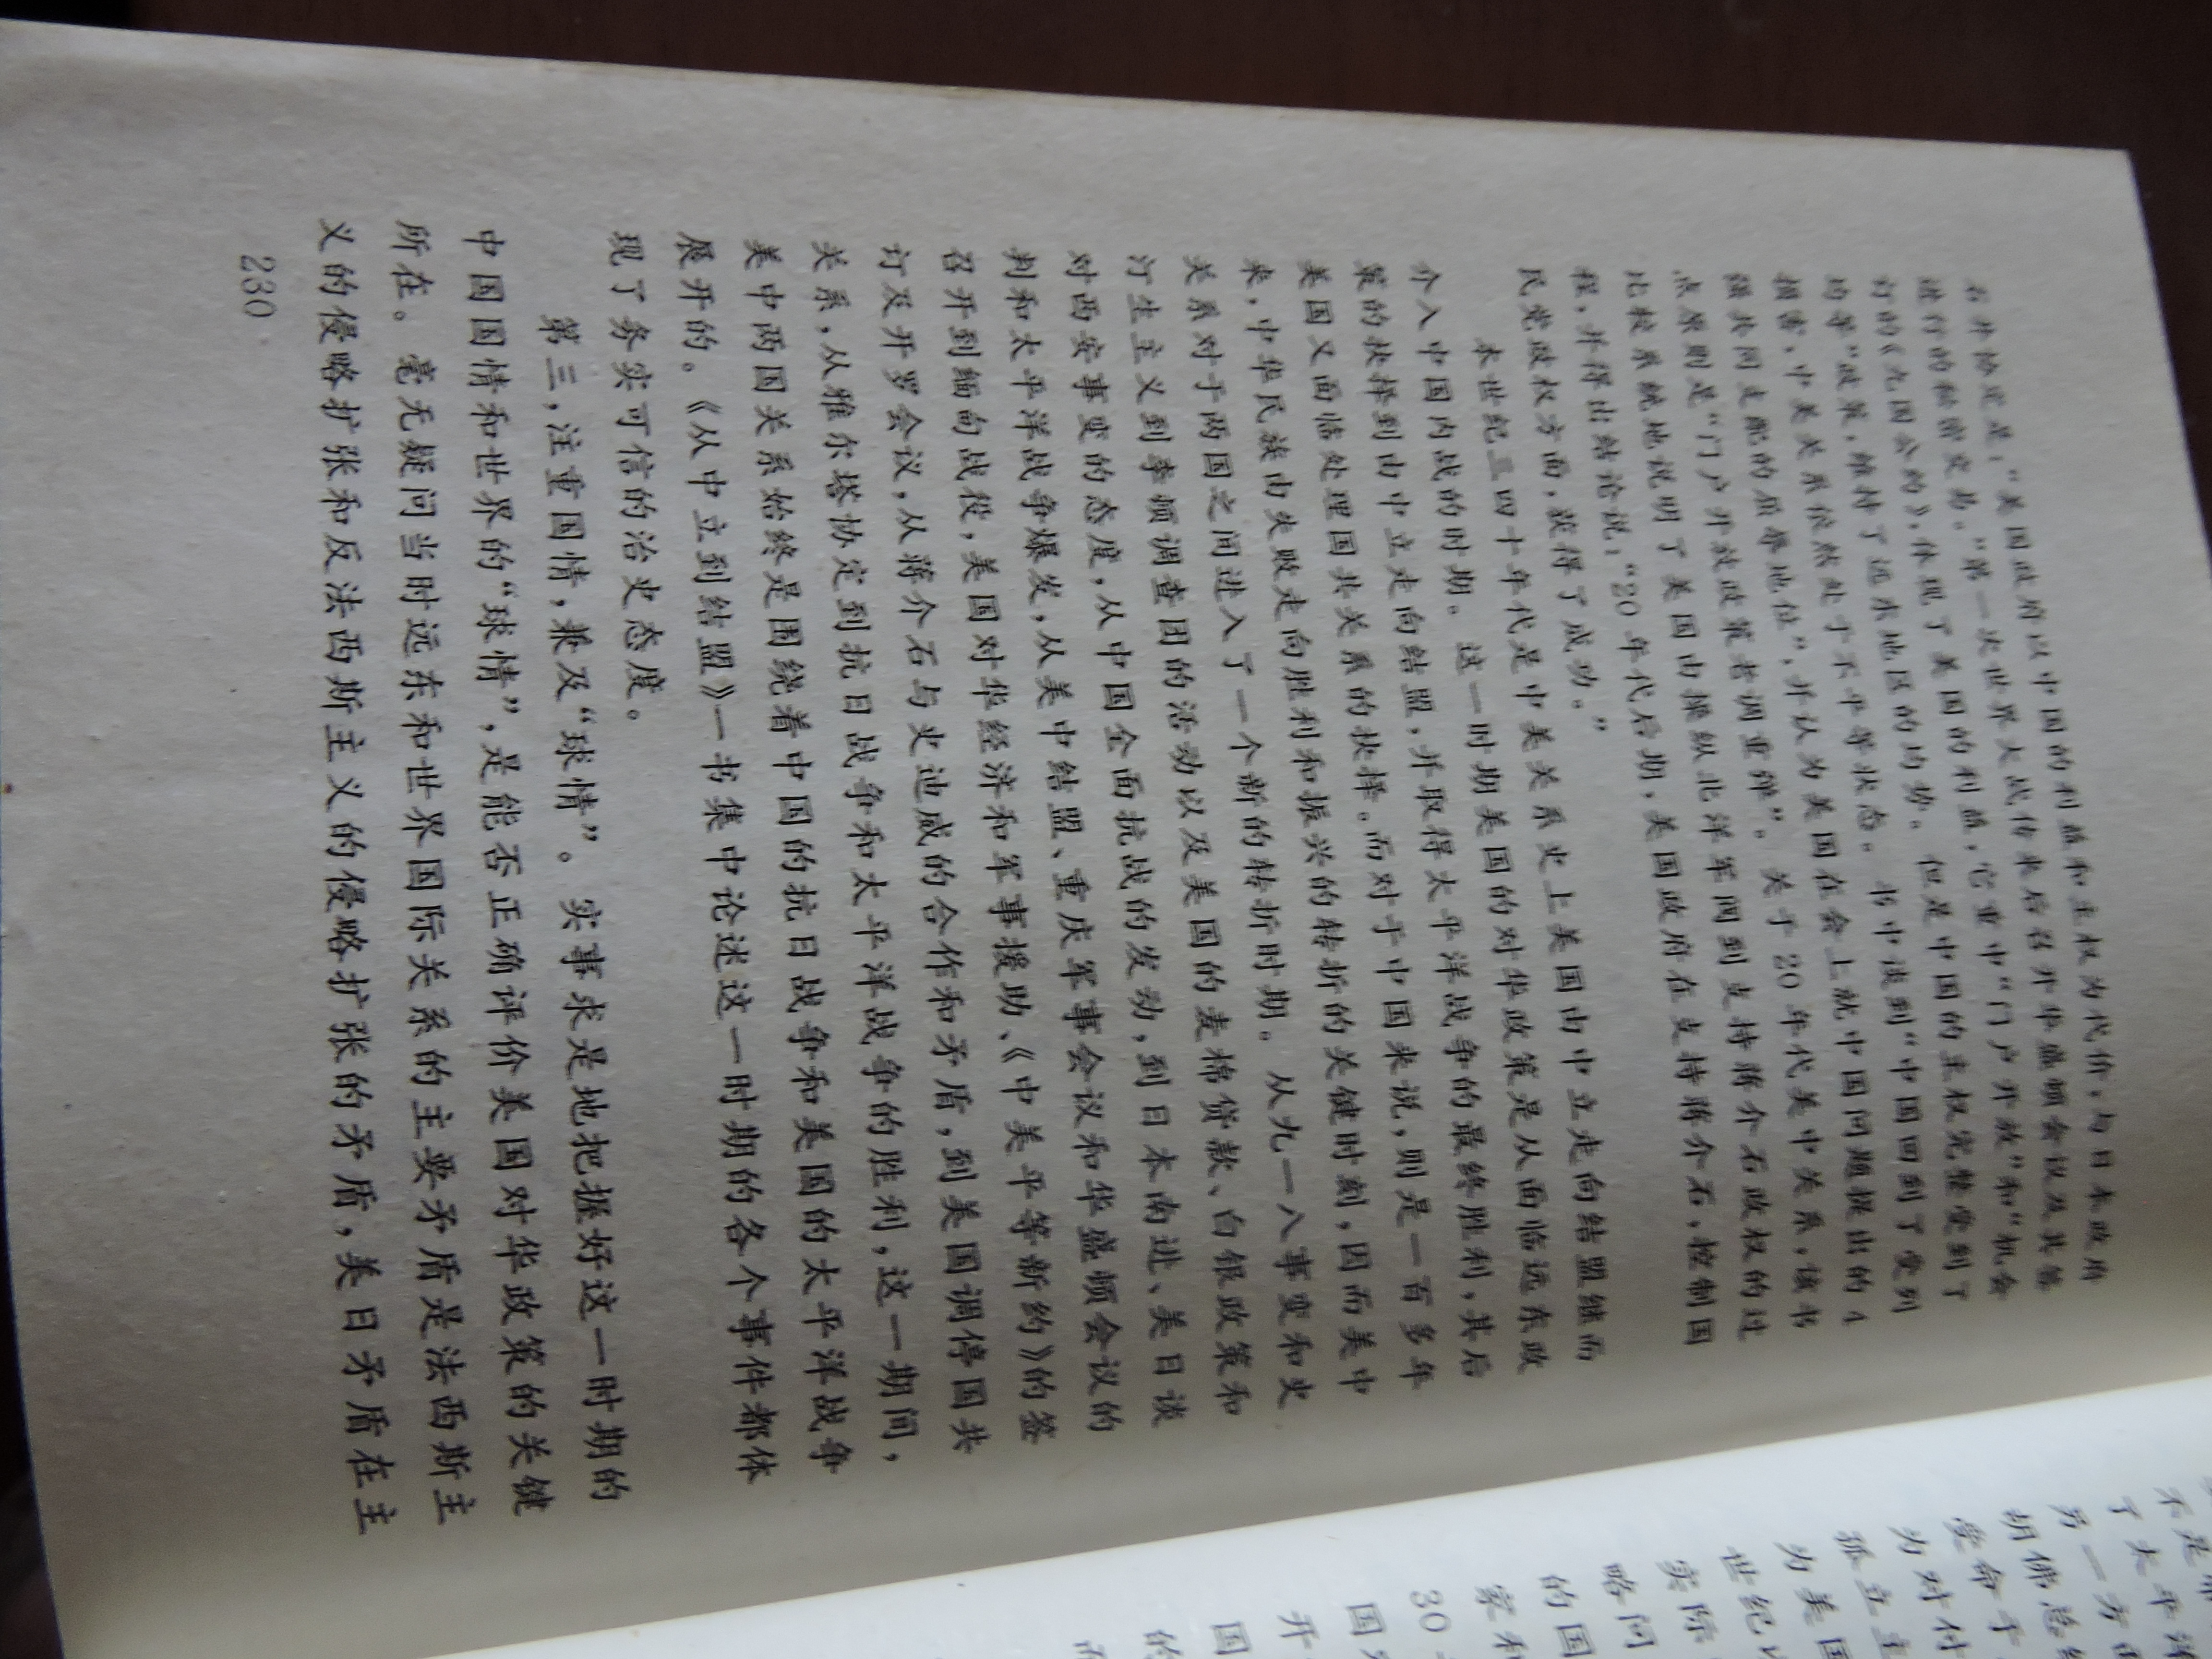 石井协定是：“美国政府以中国的利益和主权为代价，与日本政府
进行的秘密交易。”第一次世界大战传来后召开华盛顿会议及其签
订的《九国公约》，体现了美国的利益，它重申“门户开放”和“机会
均等”政策，维持了远东地区的均势。但是中国的主权完整受到了
损害，中美关系依然处于不平等状态。书中谈到“中国回到了受列
强共同支配的屈辱地位”，并认为美国在会上就中国问题提出的4
点原则是“门户开放政策老调重弹”。关于20年代美中关系，该书
比较系统地说明了美国由操纵北洋军阀到支持蒋介石政权的过
程，并得出结论说：“20年代后期，美国政府在支持蒋介石，控制国
民党政权方面，获得了成功。”
本世纪三四十年代是中美关系史上美国由中立走向结盟继而
介入中国内战的时期。这一时期美国的对华政策是从面临远东政
策的抉择到由中立走向结盟，并取得太平洋战争的最终胜利，其后
美国又面临处理国共关系的抉择。而对于中国来说，则是一百多年
来，中华民族由失败走向胜利和振兴的转折的关键时刻，因而美中
关系对于两国之间进入了一个新的转折时期。从九一八事变和史
汀生主义到李顿调查团的活动以及美国的麦棉贷款、白银政策和
对西安事变的态度，从中国全面抗战的发动，到日本南进、美日谈
判和太平洋战争爆发，从美中结盟、重庆军事会议和华盛顿会议的
召开到缅甸战役，美国对华经济和军事援助、《中美平等新约》的签
订及开罗会议，从蒋介石与史迪威的合作和矛盾，到美国调停国共
关系，从雅尔塔协定到抗日战争和太平洋战争的胜利，这一期间，
美中两国关系始终是围绕着中国的抗日战争和美国的太平洋战争
展开的。《从中立到结盟》一书集中论述这一时期的各个事件都体
现了务实可信的治史态度。
第三，注重国情，兼及“球情”。实事求是地把握好这一时期的
中国国情和世界的“球情”，是能否正确评价美国对华政策的关键
所在。毫无疑问当时远东和世界国际关系的主要矛盾是法西斯主
义的侵略扩张和反法西斯主义的侵略扩张的矛盾，美日矛盾在主
230
不是
了太平洋
另一方面
胡佛总统
受命于
为对付
孤立主
为美国
世纪
实际
略问
的国
家和
30
国
开
国
的